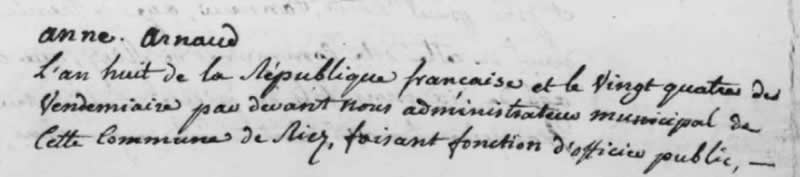 anne. arnaud
L'an huit de la République française et le vingt quatre de
Vendemiaire par devant nous administrateur municipal de
Cette Commune de Riez, faisant fonction d'officier public, —